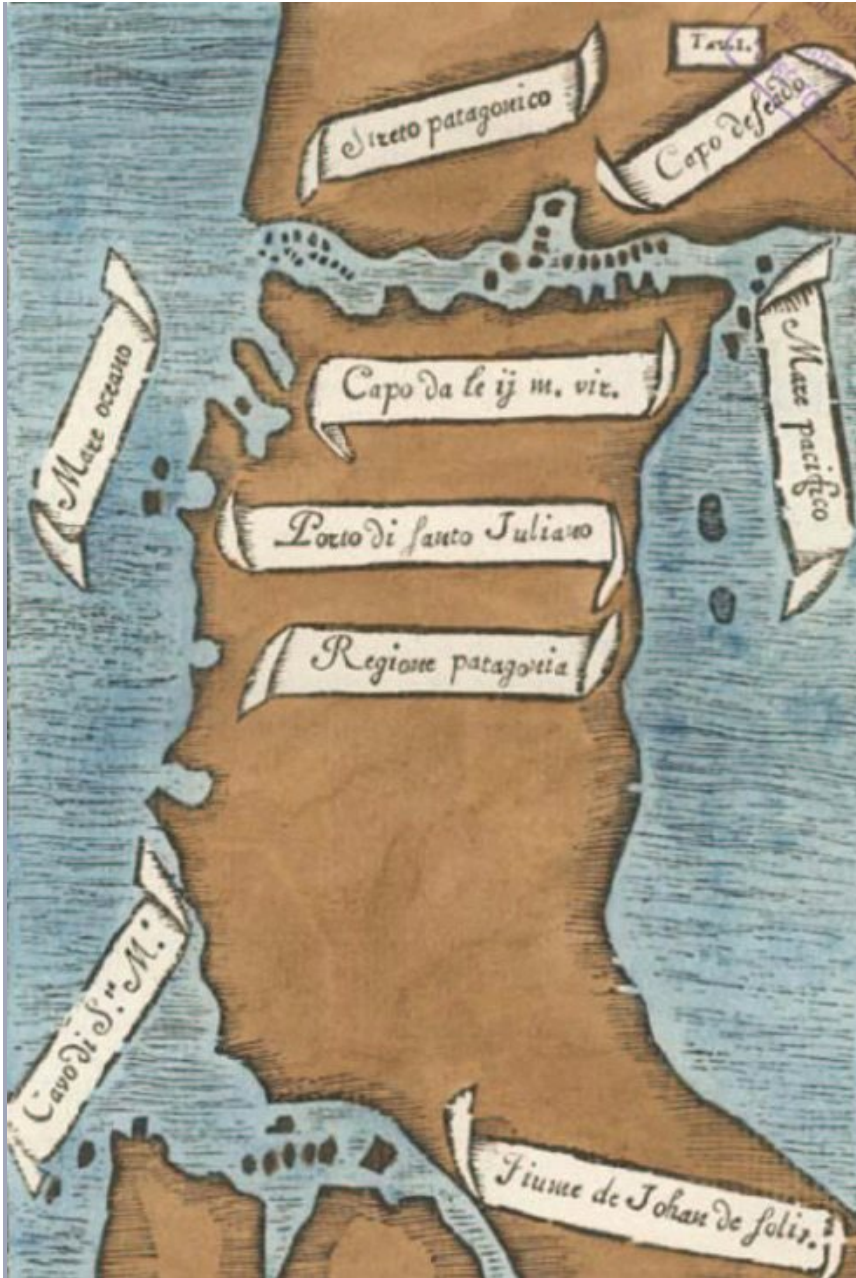 Tav. I.
Streto patagonico
Capo deseado
Mare oceano
Capo da le ij m. vir.
Mare pacifico
Porto di santo Juliano
Regione patagonia
Cavo di S.ta M.a
Fiume de Johan de solis.